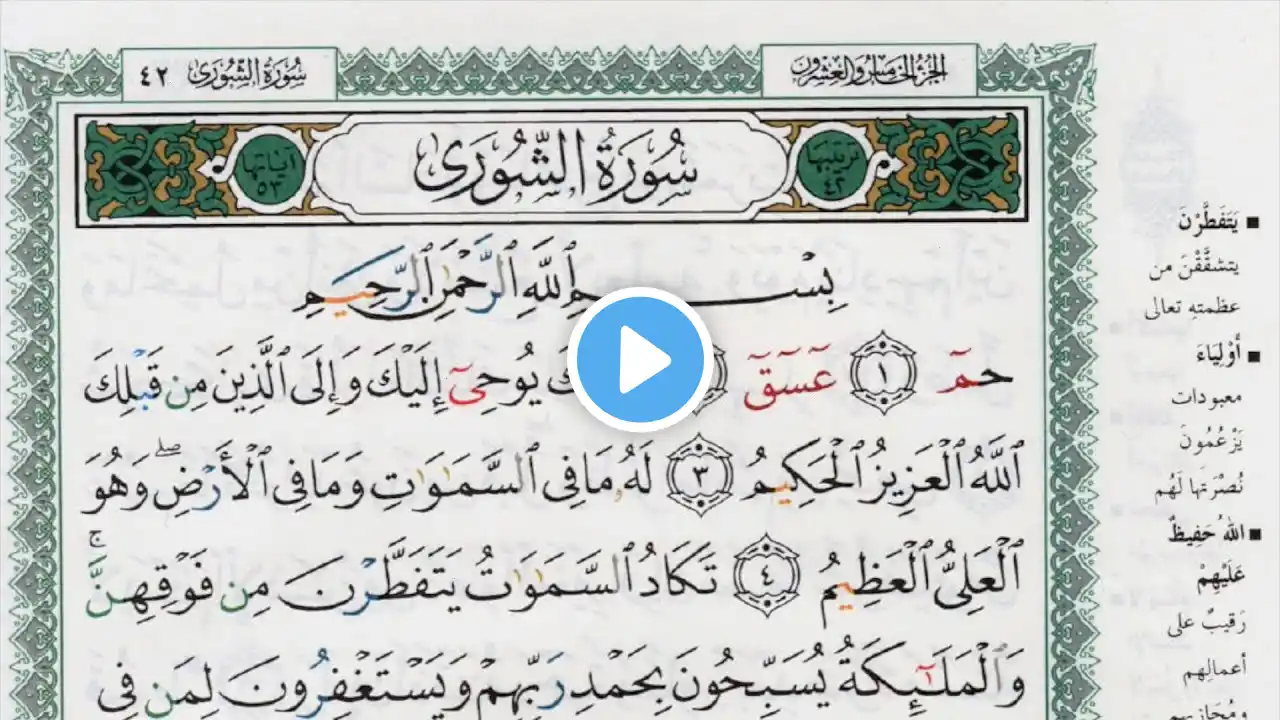 الجزء الخامس والعشرون
سُورَةُ الشُّورَى ٤٢
ترتيبها ٤٢
سُورَةُ الشُّورَى
آياتها ٥٣
بِسْمِ ٱللَّهِ ٱلرَّحْمَٰنِ ٱلرَّحِيمِ
حمٓ ١ عٓسٓقٓ كَ يُوحِىٓ إِلَيْكَ وَإِلَى ٱلَّذِينَ مِن قَبْلِكَ
ٱللَّهُ ٱلْعَزِيزُ ٱلْحَكِيمُ ٣ لَهُۥ مَا فِى ٱلسَّمَٰوَٰتِ وَمَا فِى ٱلْأَرْضِۖ وَهُوَ
ٱلْعَلِىُّ ٱلْعَظِيمُ ٤ تَكَادُ ٱلسَّمَٰوَٰتُ يَتَفَطَّرْنَ مِن فَوْقِهِنَّۚ
وَٱلْمَلَٰٓئِكَةُ يُسَبِّحُونَ بِحَمْدِ رَبِّهِمْ وَيَسْتَغْفِرُونَ لِمَن فِى
■ يَتَفَطَّرْنَ
يتشقَّقْنَ من
عظمتهِ تعالى
■ أَوْلِيَاءَ
معبودات
يَزْعُمُونَ
نُصْرَتَها لَهُم
■ اللهُ حَفِيظٌ
عَلَيْهِمْ
رَقيبٌ على
أعمالِهم
ومُجازيهم